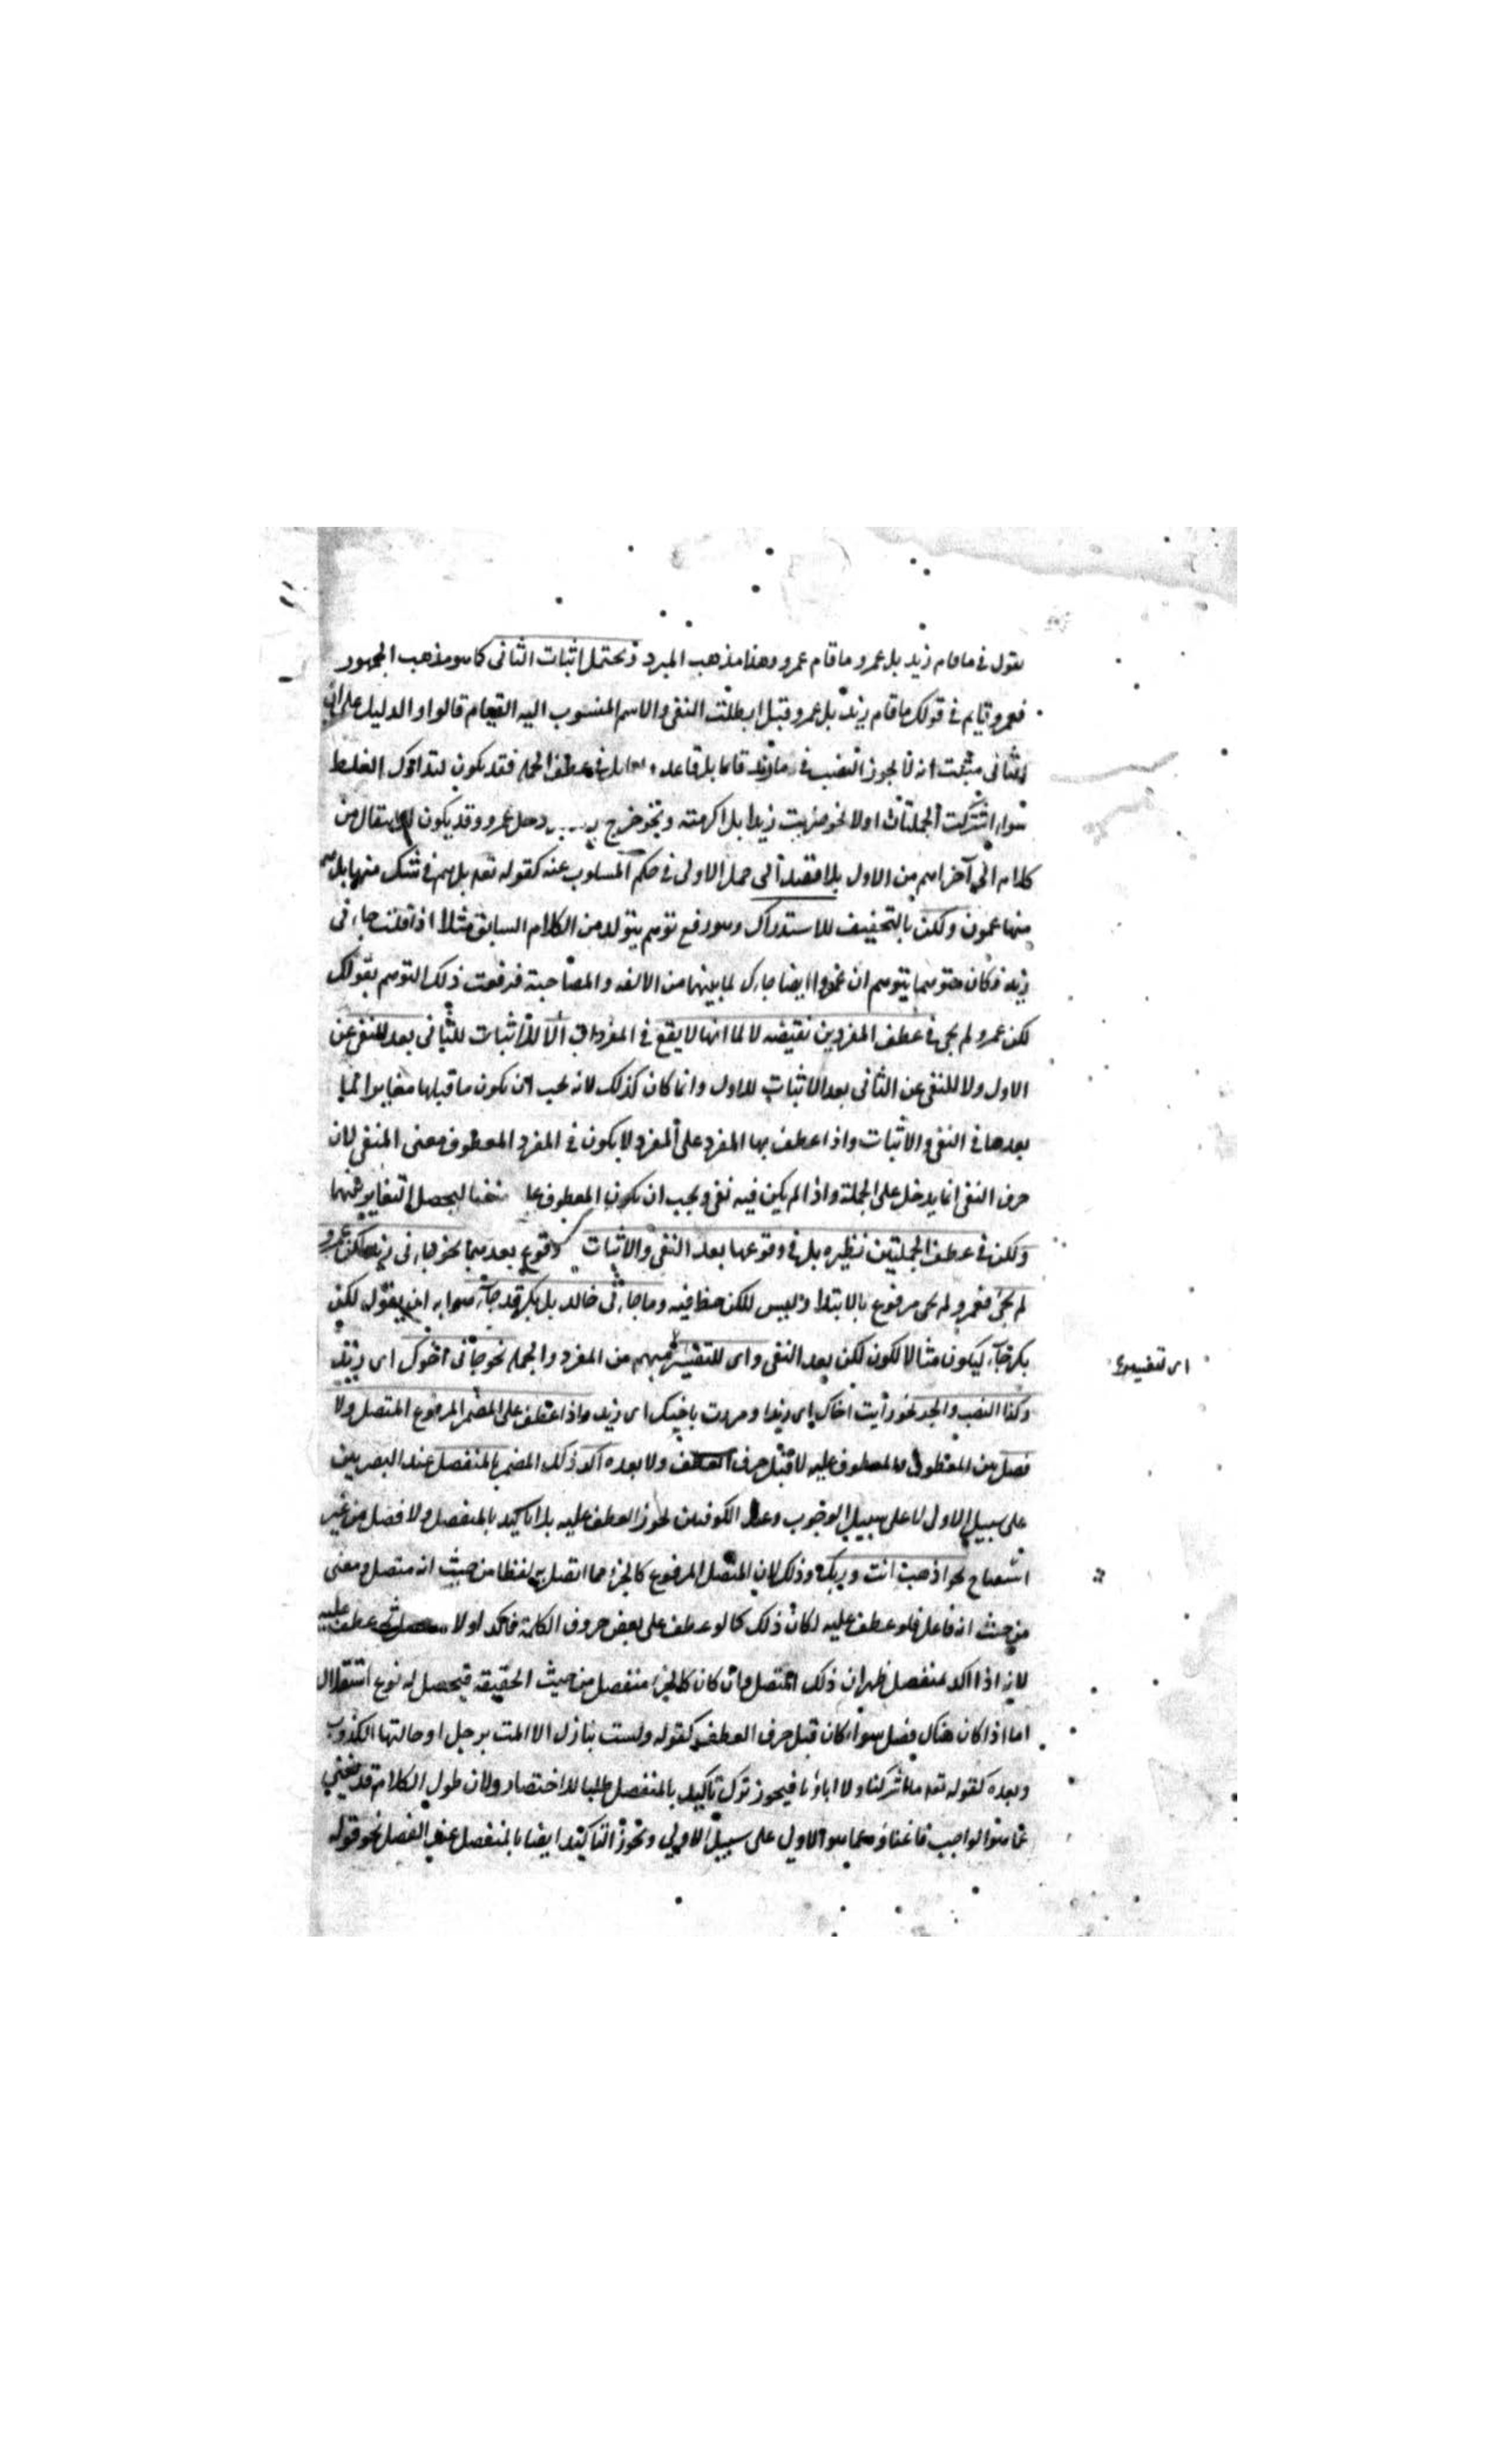 يقول فى ما قام زيد بل عمرو ما قام عمرو وهذا مذهب المبرد ويحتمل اثبات الثانى كما هو مذهب الجمهور
فعمرو قايم فى قولك ما قام زيد بل عمرو قيل ابطلت النفى والاسم المنسوب اليه القيام قالوا والدليل على ان
الثانى مثبت انه لا يجوز النصب فى ما زيد قائما بل قاعد فى عطف الجملة فقد يكون لتدارك الغلط
سواء اشتركت الجملتان اولا نحو ضربت زيدا بل اكرمته ونحو خرج دخل عمرو وقد يكون للانتقال من
كلام الى آخر اهم من الاول بلا قصد الى جعل الاولى فى حكم المسكوت عنه كقوله تعه بل هم فى شك منها بل هم
منها عمون ولكن بالتخفيف للاستدراك وهو رفع توهم يتولد من الكلام السابق مثلا اذا قلت جاءنى
زيد فكان متوهما يتوهم ان عمروا ايضا جاءك لما بينهما من الالفه والمصاحبة فرفعت ذلك التوهم بقولك
لكن عمرو لم يجئ فى عطف المفردين نقيضه لا لما انها لا يقع فى المفردات الا للاثبات للثانى بعد النفى عن
الاول ولا للنفى عن الثانى بعد الاثبات للاول وانما كان كذلك لانه يجب ان يكون ما قبلها مغايرا لما
بعدها فى النفى والاثبات واذا عطف بها المفرد على المفرد لا يكون فى المفرد المعطوف معنى المنفى لان
حرف النفى انما يدخل على الجملة واذا لم يكن فيه نفى ويجب ان يكون المعطوف عليه منفيا ليحصل التغاير بينهما
ولكن فى عطف الجملتين نظيره بل فى وقوعها بعد النفى والاثبات وقوع بعد هما نحو جاءنى زيد لكن عمرو
لم يجئ فعمرو لم يجئ مرفوع بالابتدا وليس للكن حظ فيه وما جاءنى خالد بل بكر قد جاء صوابه ان يقول لكن
بكر جاء ليكون مثالا لكون لكن بعد النفى واى للتفسير مبهم من المفرد والجملة نحو جاءنى اخوك اى زيد
اى تفسير
وكذا النصب والجر نحو رأيت اخاك اى زيدا ومررت باخيك اى زيد واذا عطف على المضمر المرفوع المتصل ولا
فصل بين المعطوف والمعطوف عليه لا قبل حرف العطف ولا بعده اكد ذلك المضمر بالمنفصل عند البصريين
على سبيل الاول لا على سبيل الوجوب وعند الكوفيين يجوز العطف عليه بلا تاكيد بالمنفصل ولا فصل من غير
استقباح نحو اذهب انت وربك وذلك لان المتصل المرفوع كالجزء مما اتصل به لفظا من حيث انه متصل ومعنى
من حيث انه فاعل فلو عطف عليه لكان ذلك كما لو عطف على بعض حروف الكلمة فاكد اولا عطف عليه
لانه اذا اكد بمنفصل ظهر ان ذلك المتصل وان كان كالجزء منفصل من حيث الحقيقة فيحصل له نوع استقلال
اما اذا كان هناك فصل سواء كان قبل حرف العطف كقوله ولست بنازل الا المت برحلى او خيالتها الكذوب
وبعده كقوله تعه ما اشركنا ولا اباؤنا فيجوز ترك تاكيد بالمنفصل طلبا للاختصار ولان طول الكلام قد يغنى
عما هو الواجب فاغناؤه عما هو الاولى على سبيل الاولى ويجوز التاكيد ايضا بالمنفصل عند الفصل نحو قوله